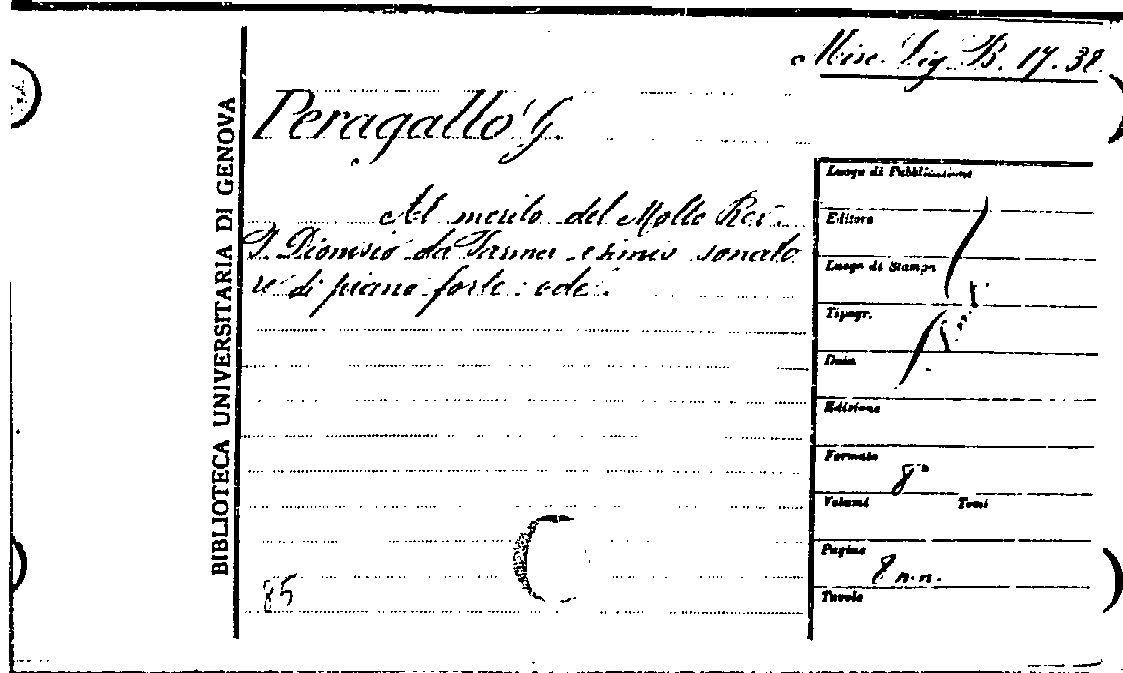 Misc. Lig. B. 17. 32
BIBLIOTECA UNIVERSITARIA DI GENOVA
Peragallo G.
Al merito del Molto Rev.
P. Dionisio da Parma esimio sonato
re di piano forte: ode.
Luogo di Pubblicazione
Editore
Luogo di Stampa
Tipogr.
Data
Edizione
Formato
8°
Volumi Tomi
Pagine
8 n.n.
Tavole
85